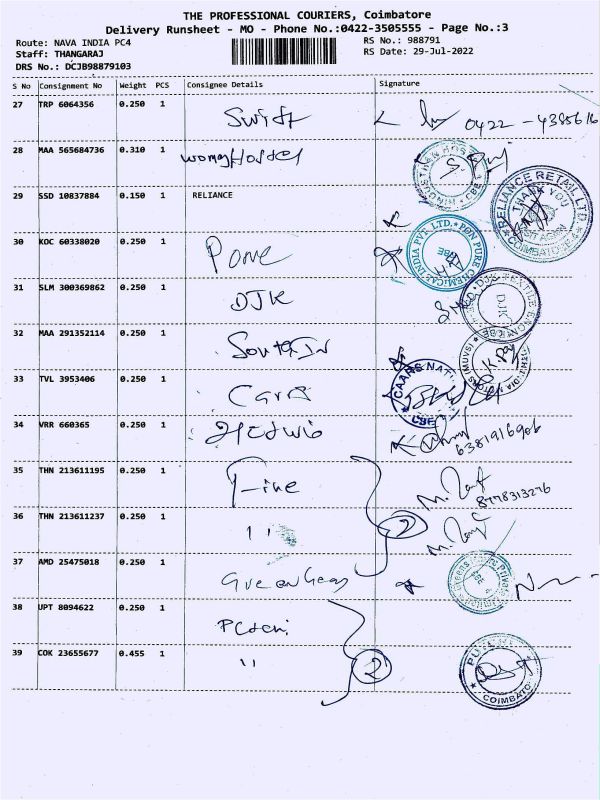 THE PROFESSIONAL COURIERS, Coimbatore
Delivery Runsheet - MO - Phone No.:0422-3505555 - Page No.:3
Route: NAVA INDIA PC4
RS No.: 988791
Staff: THANGARAJ
RS Date: 29-Jul-2022
DRS No.: DCJB98879103
S No Consignment No Weight PCS Consignee Details Signature
27 TRP 6064356 0.250 1 Swift 0422 - 4385616
28 MAA 565684736 0.310 1
29 SSD 10837884 0.150 1 RELIANCE RELIANCE RETAIL LTD. THANK YOU COIMBATO
30 KOC 60338020 0.250 1 INDIA PVT. LTD. PON PURE CHEMICAL CBE
31 SLM 300369862 0.250 1 DJK DJK TEXTILE DJK CBE
32 MAA 291352114 0.250 1
33 TVL 3953406 0.250 1 CAARS NATI CBE
34 VRR 660365 0.250 1 6381916906
35 THN 213611195 0.250 1 Fine 8778313276
36 THN 213611237 0.250 1 " 2
37 AMD 25475018 0.250 1 Green Gens
38 UPT 8094622 0.250 1
39 COK 23655677 0.455 1 " 2 COIMBATO